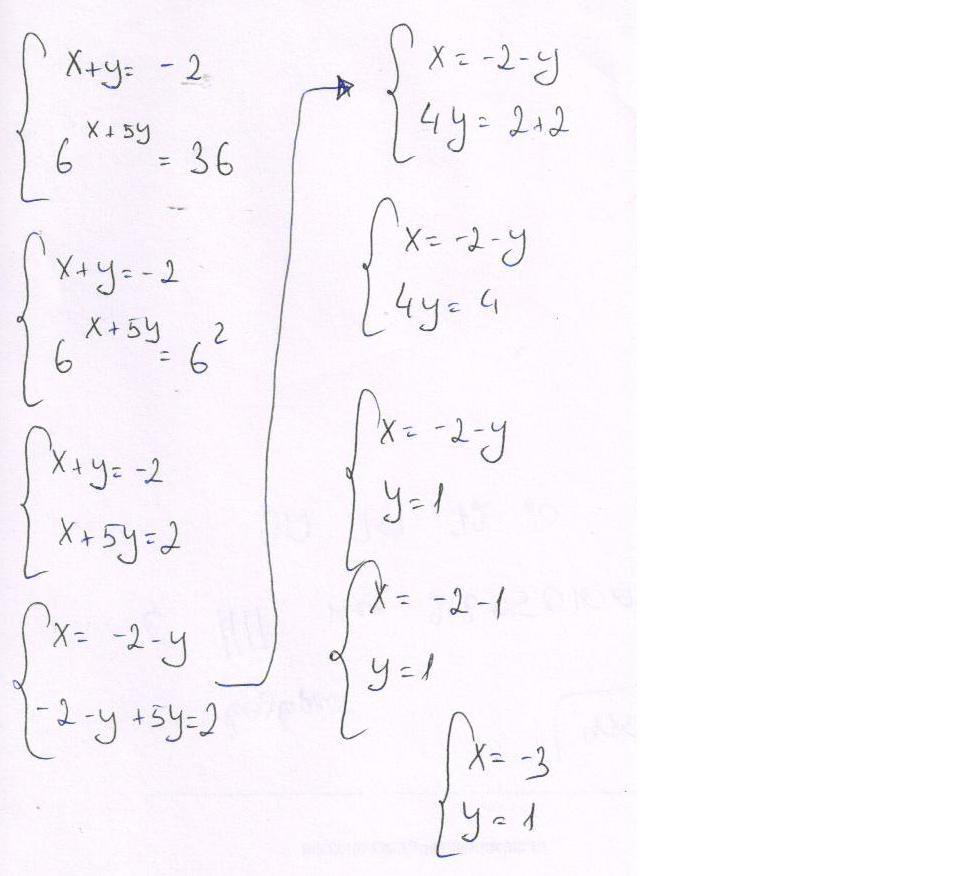 x+y= -2
6^{x+5y} = 36
x+y=-2
6^{x+5y} = 6^2
x+y=-2
x+5y=2
x= -2-y
-2-y+5y=2
x=-2-y
4y=2+2
x=-2-y
4y=4
x=-2-y
y=1
x=-2-1
y=1
x=-3
y=1